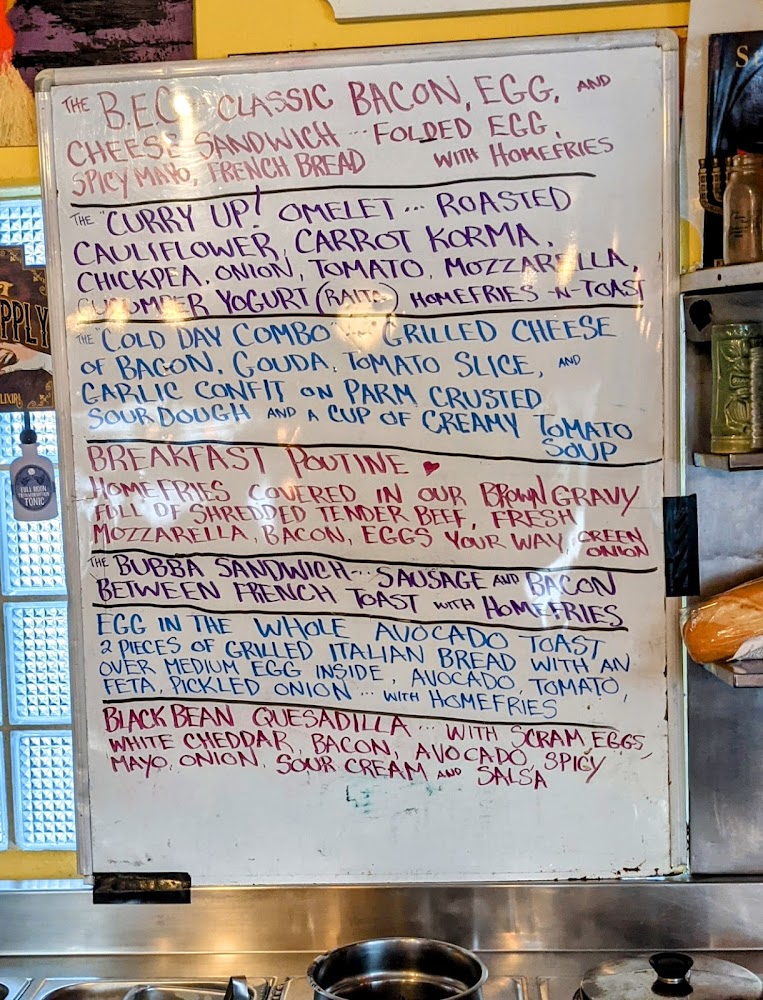 THE B.E.C. CLASSIC BACON, EGG, AND
CHEESE SANDWICH ... FOLDED EGG,
SPICY MAYO, FRENCH BREAD WITH HOMEFRIES
THE "CURRY UP! OMELET ... ROASTED
CAULIFLOWER, CARROT KORMA,
CHICKPEA, ONION, TOMATO, MOZZARELLA,
CUCUMBER YOGURT (RAITA) HOMEFRIES -N- TOAST
THE "COLD DAY COMBO" ... GRILLED CHEESE
OF BACON, GOUDA, TOMATO SLICE, AND
GARLIC CONFIT ON PARM CRUSTED
SOURDOUGH AND A CUP OF CREAMY TOMATO
SOUP
BREAKFAST POUTINE ♥
HOMEFRIES COVERED IN OUR BROWN GRAVY
FULL OF SHREDDED TENDER BEEF, FRESH
MOZZARELLA, BACON, EGGS YOUR WAY, GREEN
ONION
THE BUBBA SANDWICH ... SAUSAGE AND BACON
BETWEEN FRENCH TOAST WITH HOMEFRIES
EGG IN THE WHOLE AVOCADO TOAST
2 PIECES OF GRILLED ITALIAN BREAD WITH AN
OVER MEDIUM EGG INSIDE, AVOCADO, TOMATO,
FETA, PICKLED ONION ... WITH HOMEFRIES
BLACK BEAN QUESADILLA ... WITH SCRAM EGGS,
WHITE CHEDDAR, BACON, AVOCADO, SPICY
MAYO, ONION, SOUR CREAM AND SALSA
FULL MOON
TONIC